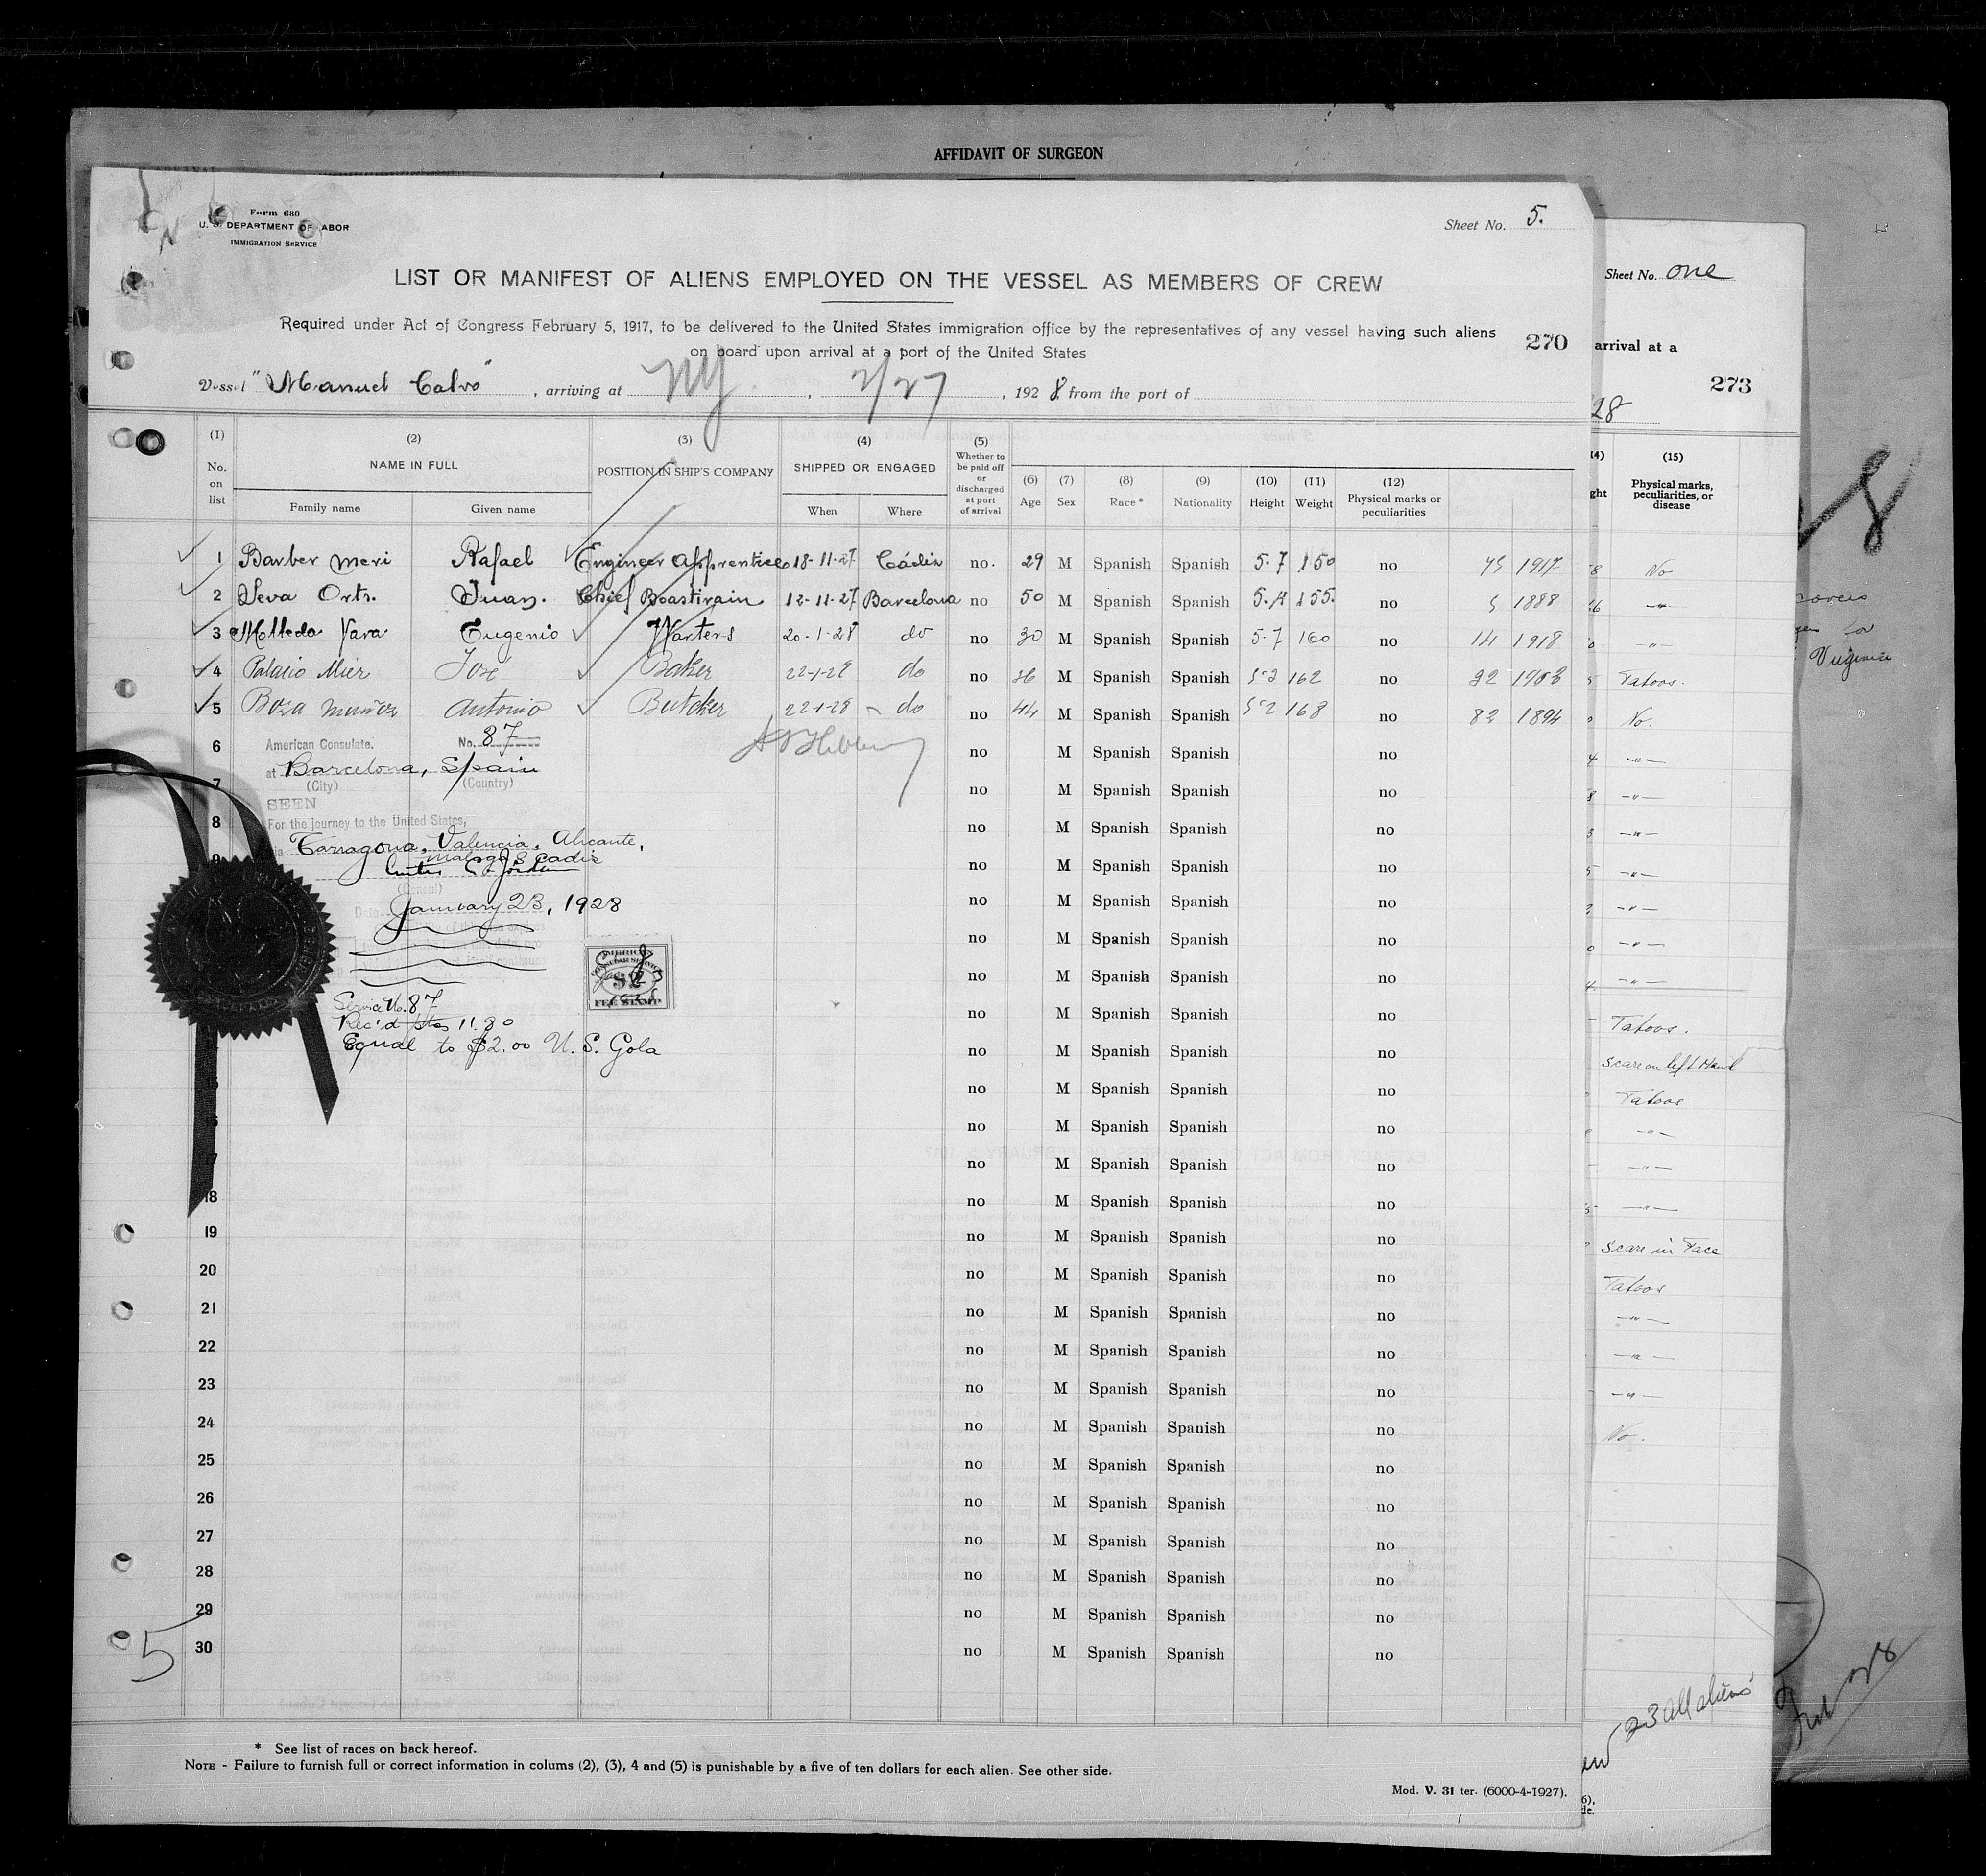 AFFIDAVIT OF SURGEON
Form 680
U. S. DEPARTMENT OF LABOR
IMMIGRATION SERVICE
Sheet No. 5.
LIST OR MANIFEST OF ALIENS EMPLOYED ON THE VESSEL AS MEMBERS OF CREW
Required under Act of Congress February 5, 1917, to be delivered to the United States immigration office by the representatives of any vessel having such aliens
on board upon arrival at a port of the United States
270
Vessel "Manuel Calvo", arriving at NY, 2/27, 1928 from the port of
(1) No. on list
(2) NAME IN FULL
Family name Given name
(3) POSITION IN SHIP'S COMPANY
(4) SHIPPED OR ENGAGED
When Where
(5) Whether to be paid off or discharged at port of arrival
(6) Age
(7) Sex
(8) Race*
(9) Nationality
(10) Height
(11) Weight
(12) Physical marks or peculiarities
1 Barber Meri Rafael Engineer Apprentice 18-11-27 Cádiz no. 29 M Spanish Spanish 5.7 150 no 1917
2 Orts. Juan. Chief 12-11-27 Barcelona no 50 M Spanish Spanish 155. no 1888
3 Molleda Vara Eugenio 20-1-28 do no 30 M Spanish Spanish 5.7 160 no 1918
4 Palacio Mier José Baker 22-1-28 do no M Spanish Spanish 162 no
5 Boza Muñoz Antonio Butcher 22-1-28 do no 44 M Spanish Spanish 168 no 82 1894
6 no M Spanish Spanish no
7 no M Spanish Spanish no
8 no M Spanish Spanish no
9 no M Spanish Spanish no
no M Spanish Spanish no
no M Spanish Spanish no
no M Spanish Spanish no
no M Spanish Spanish no
no M Spanish Spanish no
no M Spanish Spanish no
no M Spanish Spanish no
no M Spanish Spanish no
18 no M Spanish Spanish no
19 no M Spanish Spanish no
20 no M Spanish Spanish no
21 no M Spanish Spanish no
22 no M Spanish Spanish no
23 no M Spanish Spanish no
24 no M Spanish Spanish no
25 no M Spanish Spanish no
26 no M Spanish Spanish no
27 no M Spanish Spanish no
28 no M Spanish Spanish no
29 no M Spanish Spanish no
30 no M Spanish Spanish no
American Consulate. No. 87
at Barcelona, Spain
(City) (Country)
SEEN
For the journey to the United States,
via Tarragona, Valencia, Alicante,
Malaga & Cadiz
Curtis C. Jordan
(Consul)
Date January 23, 1928
AMERICAN
CONSULAR SERVICE
$2
FEE STAMP
Service No. 87
Rec'd ptas 11.80
Equal to $2.00 U. S. Gold
5
* See list of races on back hereof.
NOTE - Failure to furnish full or correct information in colums (2), (3), 4 and (5) is punishable by a five of ten dollars for each alien. See other side.
Mod. V. 31 ter. (6000-4-1927).
Sheet No. one
arrival at a
273
28
(15)
Physical marks, peculiarities, or disease
No
Tatoos.
No.
Tatoos.
Scare on left Hand
Tatoos
Scare in Face
Tatoos
No.
23 all aliens
Virginia